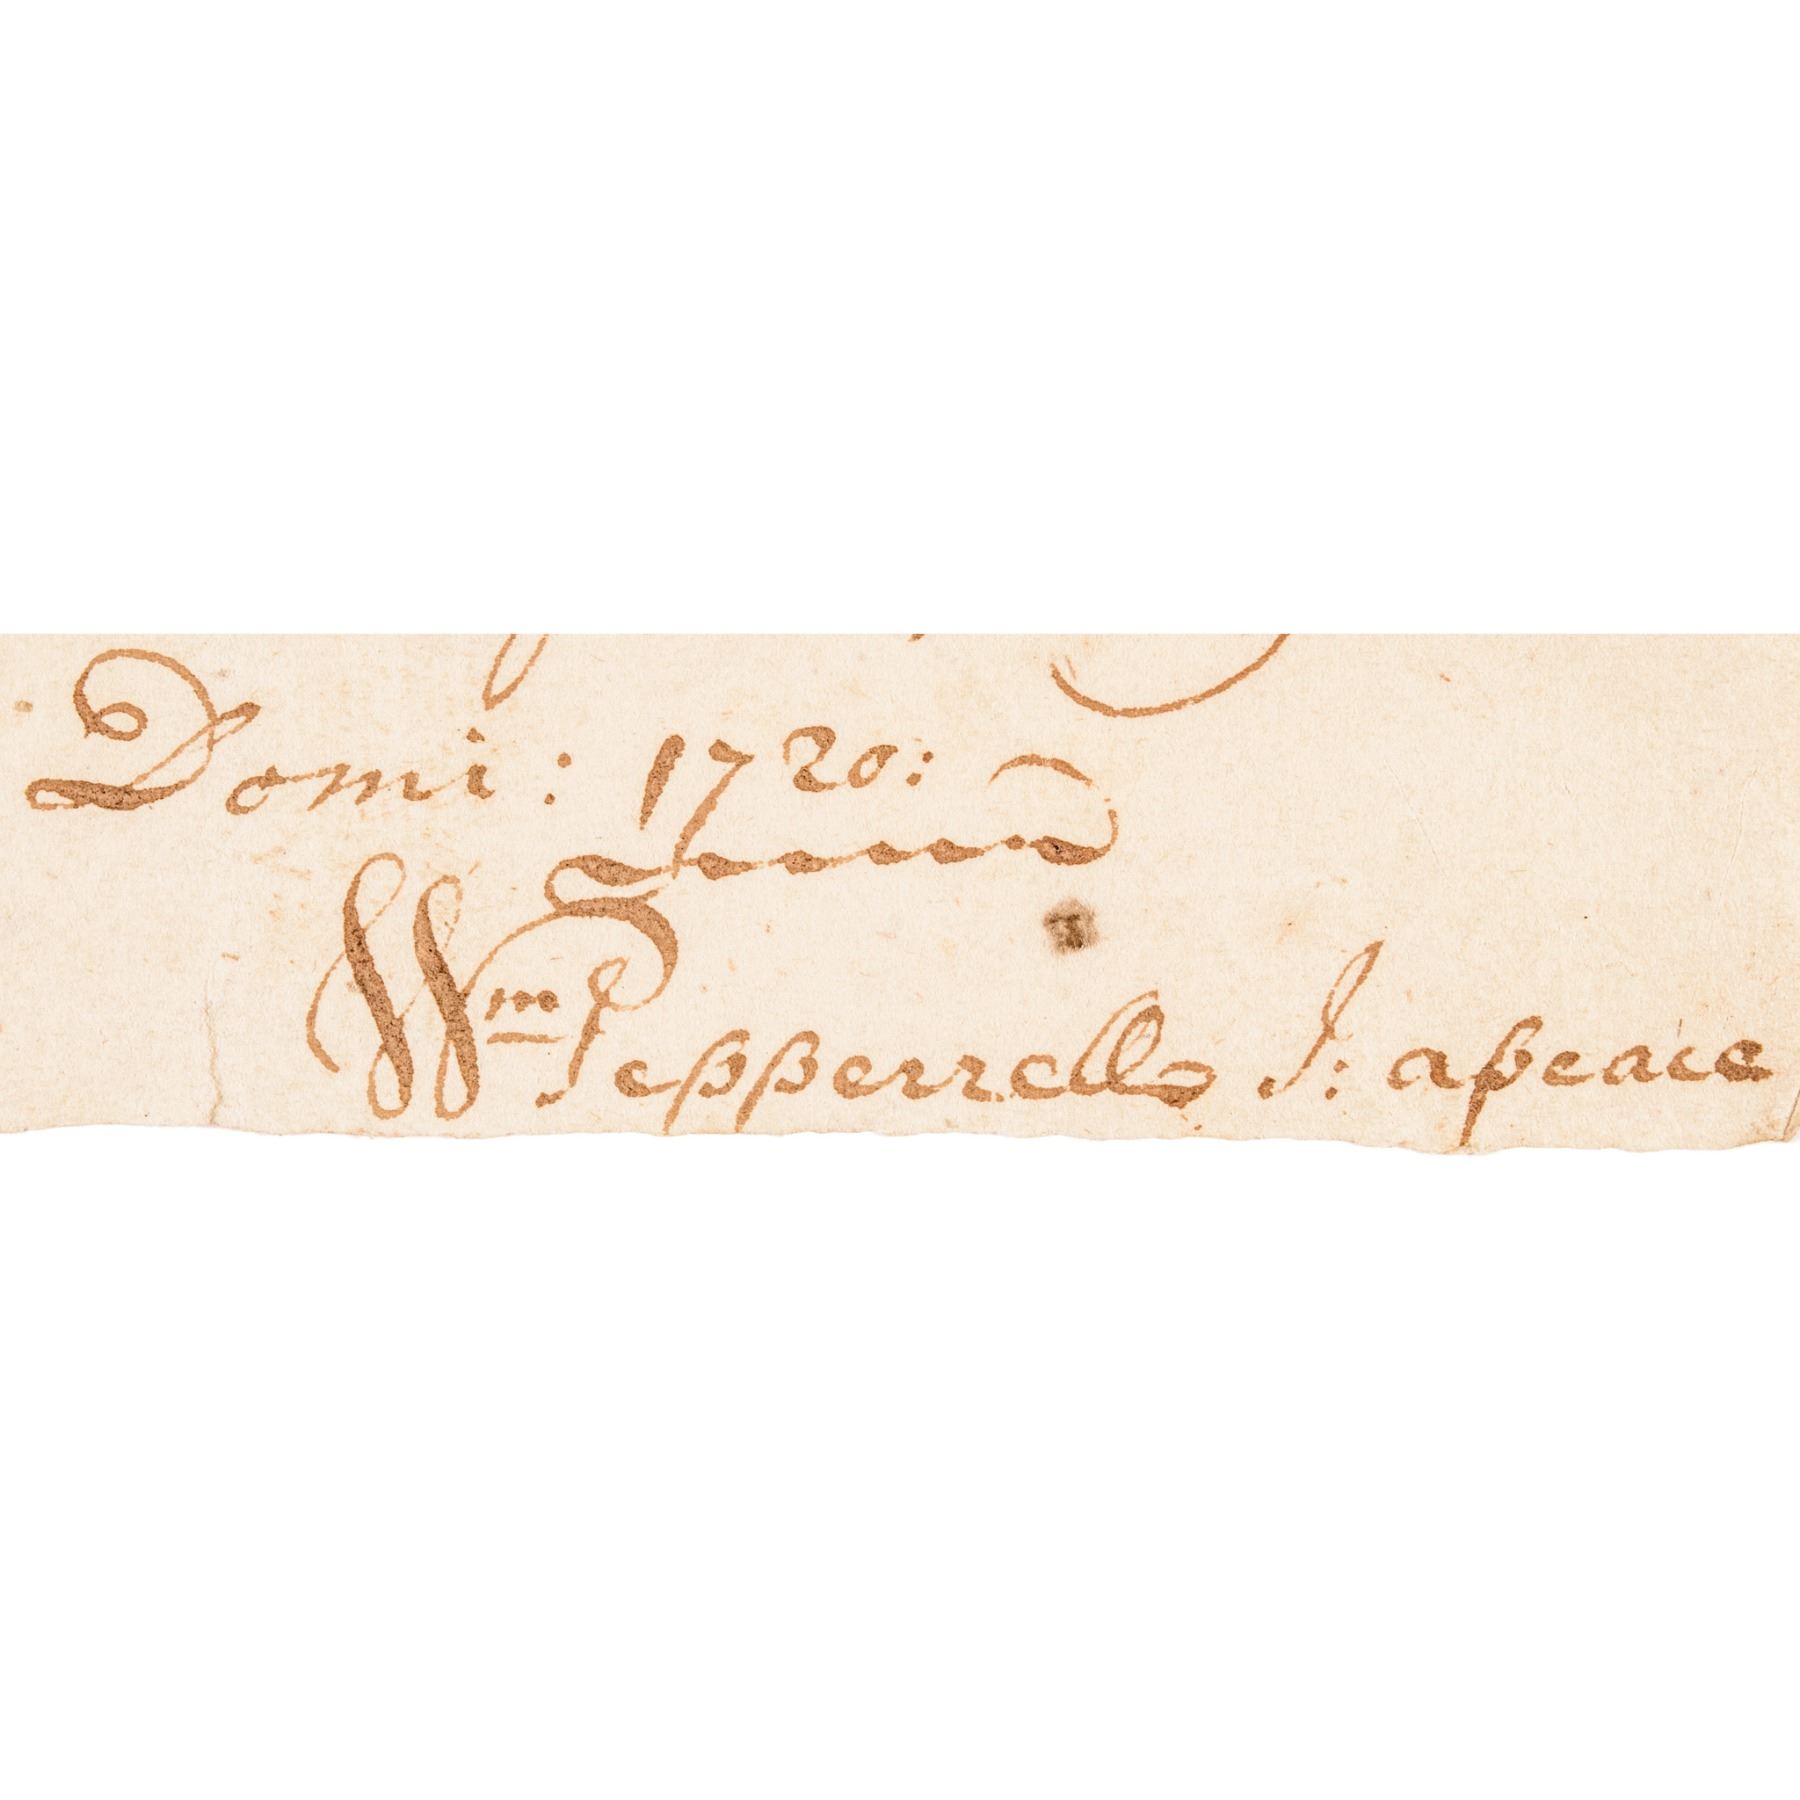 Domi: 1720:
Wm Pepperrell J: apeace